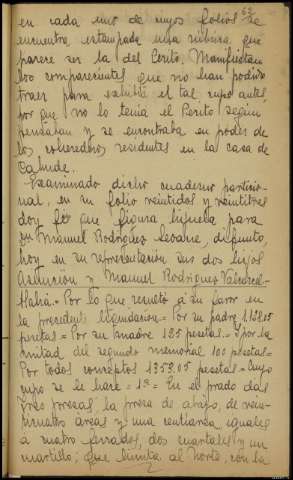 62
en cada uno de cuyos folios se
encuentra estampada una rúbrica que
parece ser la del Perito. Manifiestan
los comparecientes que no han podido
traer para exhibir el tal cupo
por que no lo tenia el Perito según
pensaban y se encontraba en poder de
los coherederos residentes en la casa de
Examinado dicho cuaderno particio-
nal, en su folio veintidos y veintitres
doy fe que figura hijuela para
Manuel Rodriguez Seoane, difunto,
hoy en su representación sus dos hijos
Asunción y Manuel Rodriguez
Habia = Por lo que resultó a su favor en
la precedente liquidación = Por su padre
pesetas = Por su madre 125 pesetas = Y por la
mitad del segundo memorial 100 pesetas =
Por todos conceptos 1353.05 pesetas = Cuyo
cupo se le hace = 1ª = En el prado das
tres presas, la presa de abajo, de vein-
areas y una centiarea, iguales
a cuatro ferrados, dos cuartales y un
; que limita al Norte, con la